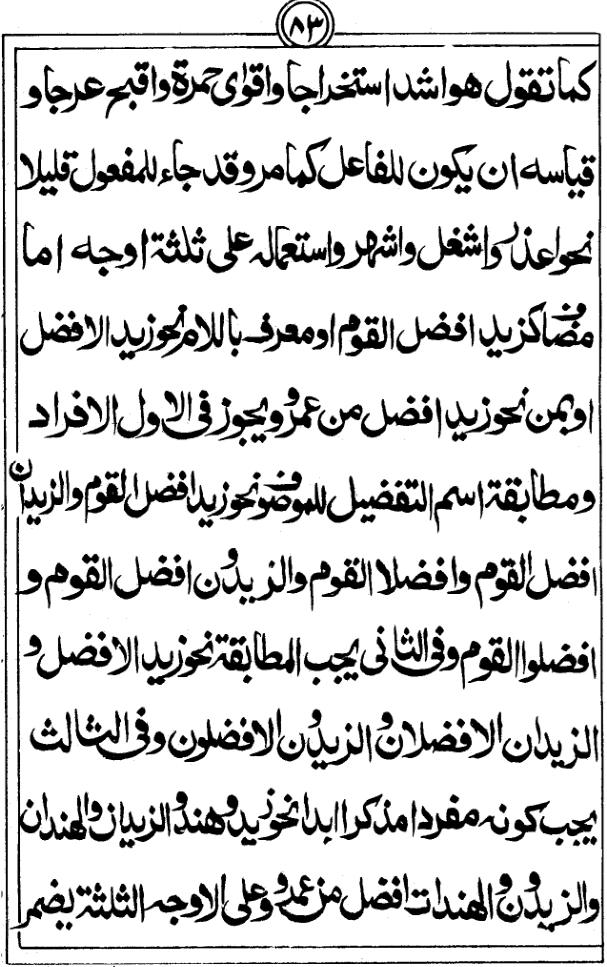 ٨٣
كما تقول هو اشد استخراجا واقوى حمرة واقبح عرجا و
قياسه ان يكون للفاعل كما مر وقد جاء للمفعول قليلا
نحو اعذر واشغل واشهر واستعماله على ثلثة اوجه اما
مضاف كزيد افضل القوم او معرف باللام نحو زيد الافضل
او بمن نحو زيد افضل من عمرو ويجوز فى الاول الافراد
ومطابقة اسم التفضيل للموصوف نحو زيد افضل القوم والزيدان
افضل القوم وافضلا القوم والزيدون افضل القوم و
افضلوا القوم وفى الثانى يجب المطابقة نحو زيد الافضل و
الزيدان الافضلان والزيدون الافضلون وفى الثالث
يجب كونه مفردا مذكرا ابدا نحو زيد وهند والزيدان والهندان
والزيدون والهندات افضل من عمرو وعلى الاوجه الثلثة يضمر